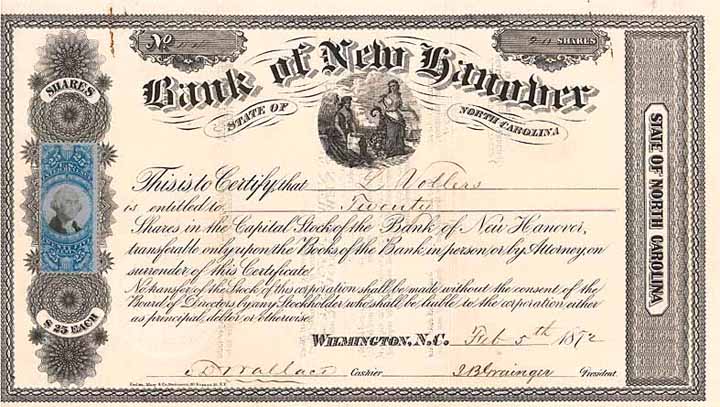 No
SHARES
Bank of New Hanover
STATE OF NORTH CAROLINA
SHARES
This is to Certify that L Vollers
is entitled to Twenty
Shares in the Capital Stock of the Bank of New Hanover,
transferable only upon the Books of the Bank in person or by Attorney, on
surrender of this Certificate
No transfer of the Stock of this corporation shall be made without the consent of the
Board of Directors by any Stockholder who shall be liable to the corporation either
as principal, debtor or otherwise.
$25 EACH
WILMINGTON, N.C. Feb 5th 1872
Wallace Cashier I B Grainger President
STATE OF NORTH CAROLINA